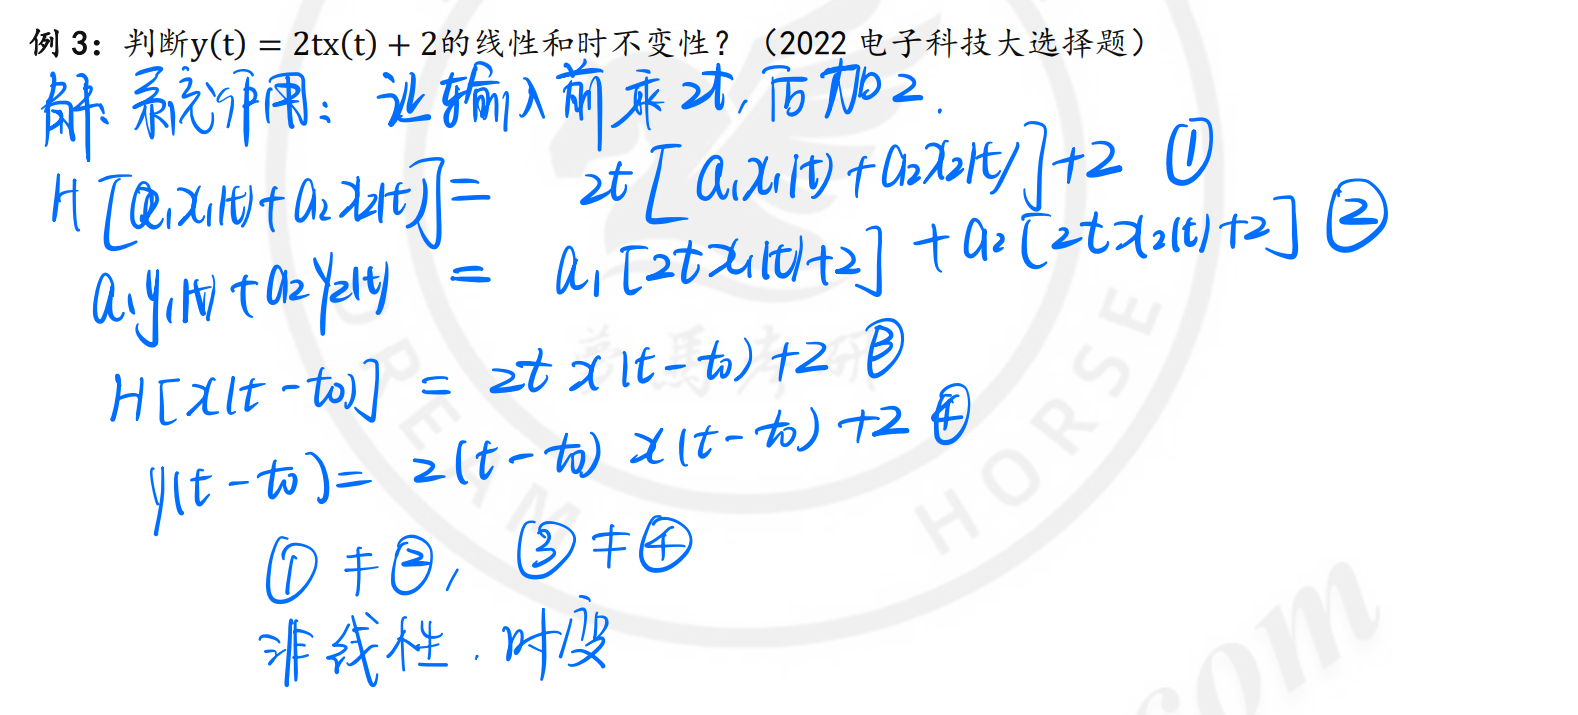 例 3：判断y(t) = 2tx(t) + 2的线性和时不变性？（2022 电子科技大选择题）
解: 系统作用: 让输入前乘2t, 后加2.
H[a₁x₁(t)+a₂x₂(t)] = 2t[a₁x₁(t)+a₂x₂(t)]+2 ①
a₁y₁(t)+a₂y₂(t) = a₁[2tx₁(t)+2] + a₂[2tx₂(t)+2] ②
H[x(t-t₀)] = 2t x(t-t₀)+2 ③
y(t-t₀) = 2(t-t₀) x(t-t₀)+2 ④
① ≠ ②, ③ ≠ ④
非线性. 时变
DREAM HORSE
com